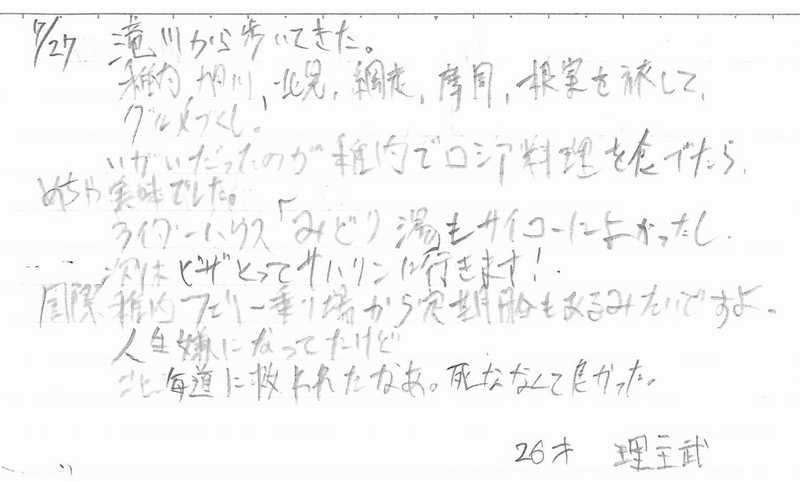 7/27 滝川から歩いてきた。
稚内、旭川、北見、網走、摩周、根室を旅して、
グルメづくし。
いがいだったのが稚内でロシア料理を食べたら、
めちゃ美味でした。
ライダーハウス「みどり湯もサイコーによかったし
次は ビザとってサハリンに行きます！
国際 稚内フェリー乗り場から定期船もあるみたいですよ。
人生嫌になってたけど
北海道に救われたなあ。死ななくて良かった。
26才 理主武